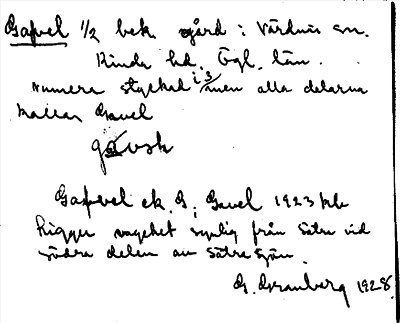 Gafvel 1/2 bek gård i Värdnäs sn.
Kinda hd. Ögl. län.
numera styckad i 3/ men alla delarna
kallas Gavel
Gafvel ek. G. i Gavel 1923
ligger synlig från Sätra vid
södra delen av Sätrasjön.
G. Granberg 1928.